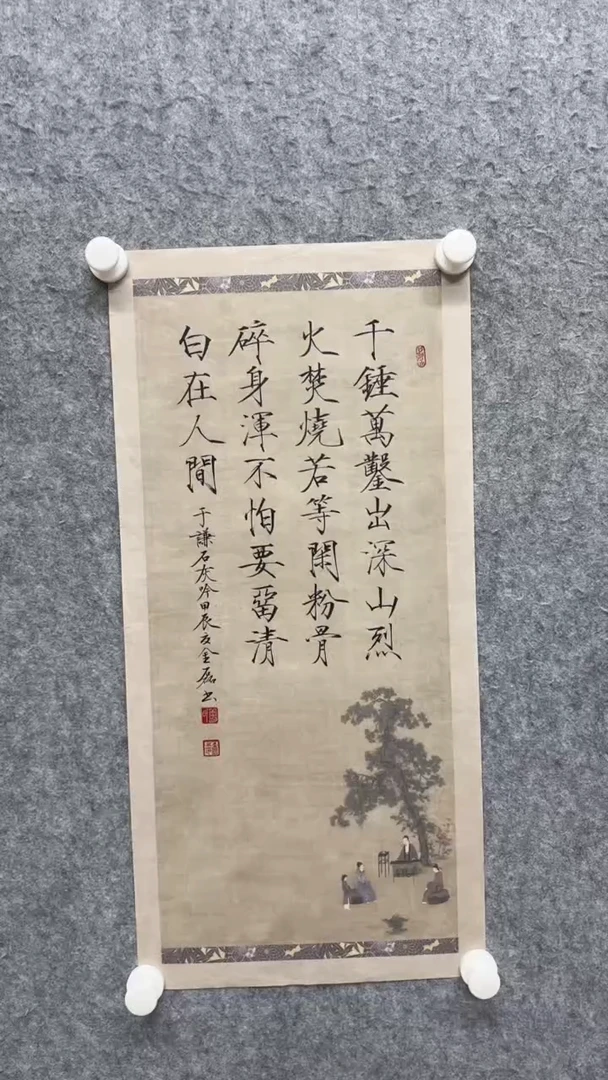 千錘萬鑿出深山烈
火焚燒若等閑粉骨
碎身渾不怕要留清
白在人間
于謙石灰吟甲辰夏金磊书